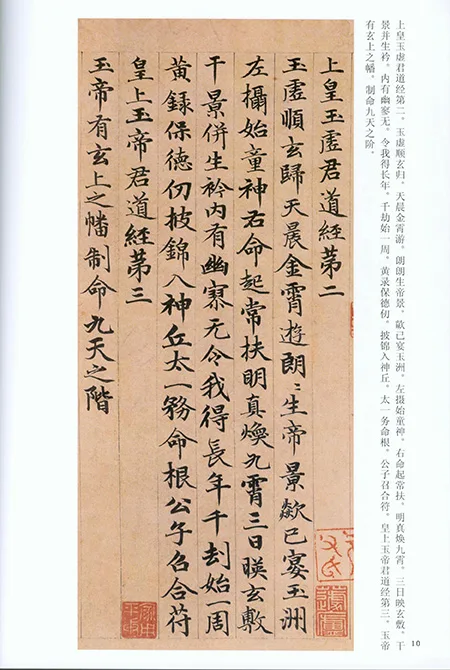 上皇玉虚君道经第二。玉虚顺玄归。天晨金霄游。朗朗生帝景。歘已宴玉洲。左摄始童神。右命起常扶。明真焕九霄。三日映玄敷。千
景并生衿。内有幽寥无。令我得长年。千劫始一周。黄录保德仞。披锦入神丘。太一务命根。公子召合符。皇上玉帝君道经第三。玉帝
有玄上之幡。制命九天之阶。
上皇玉虛君道經第二
玉虛順玄歸天晨金霄遊朗〻生帝景歘已宴玉洲
左攝始童神右命起常扶明真煥九霄三日暎玄敷
千景併生衿内有幽寥无令我得長年千刦始一周
黄録保德仞披錦入神丘太一務命根公子召合符
皇上玉帝君道經第三
玉帝有玄上之幡制命九天之階
10